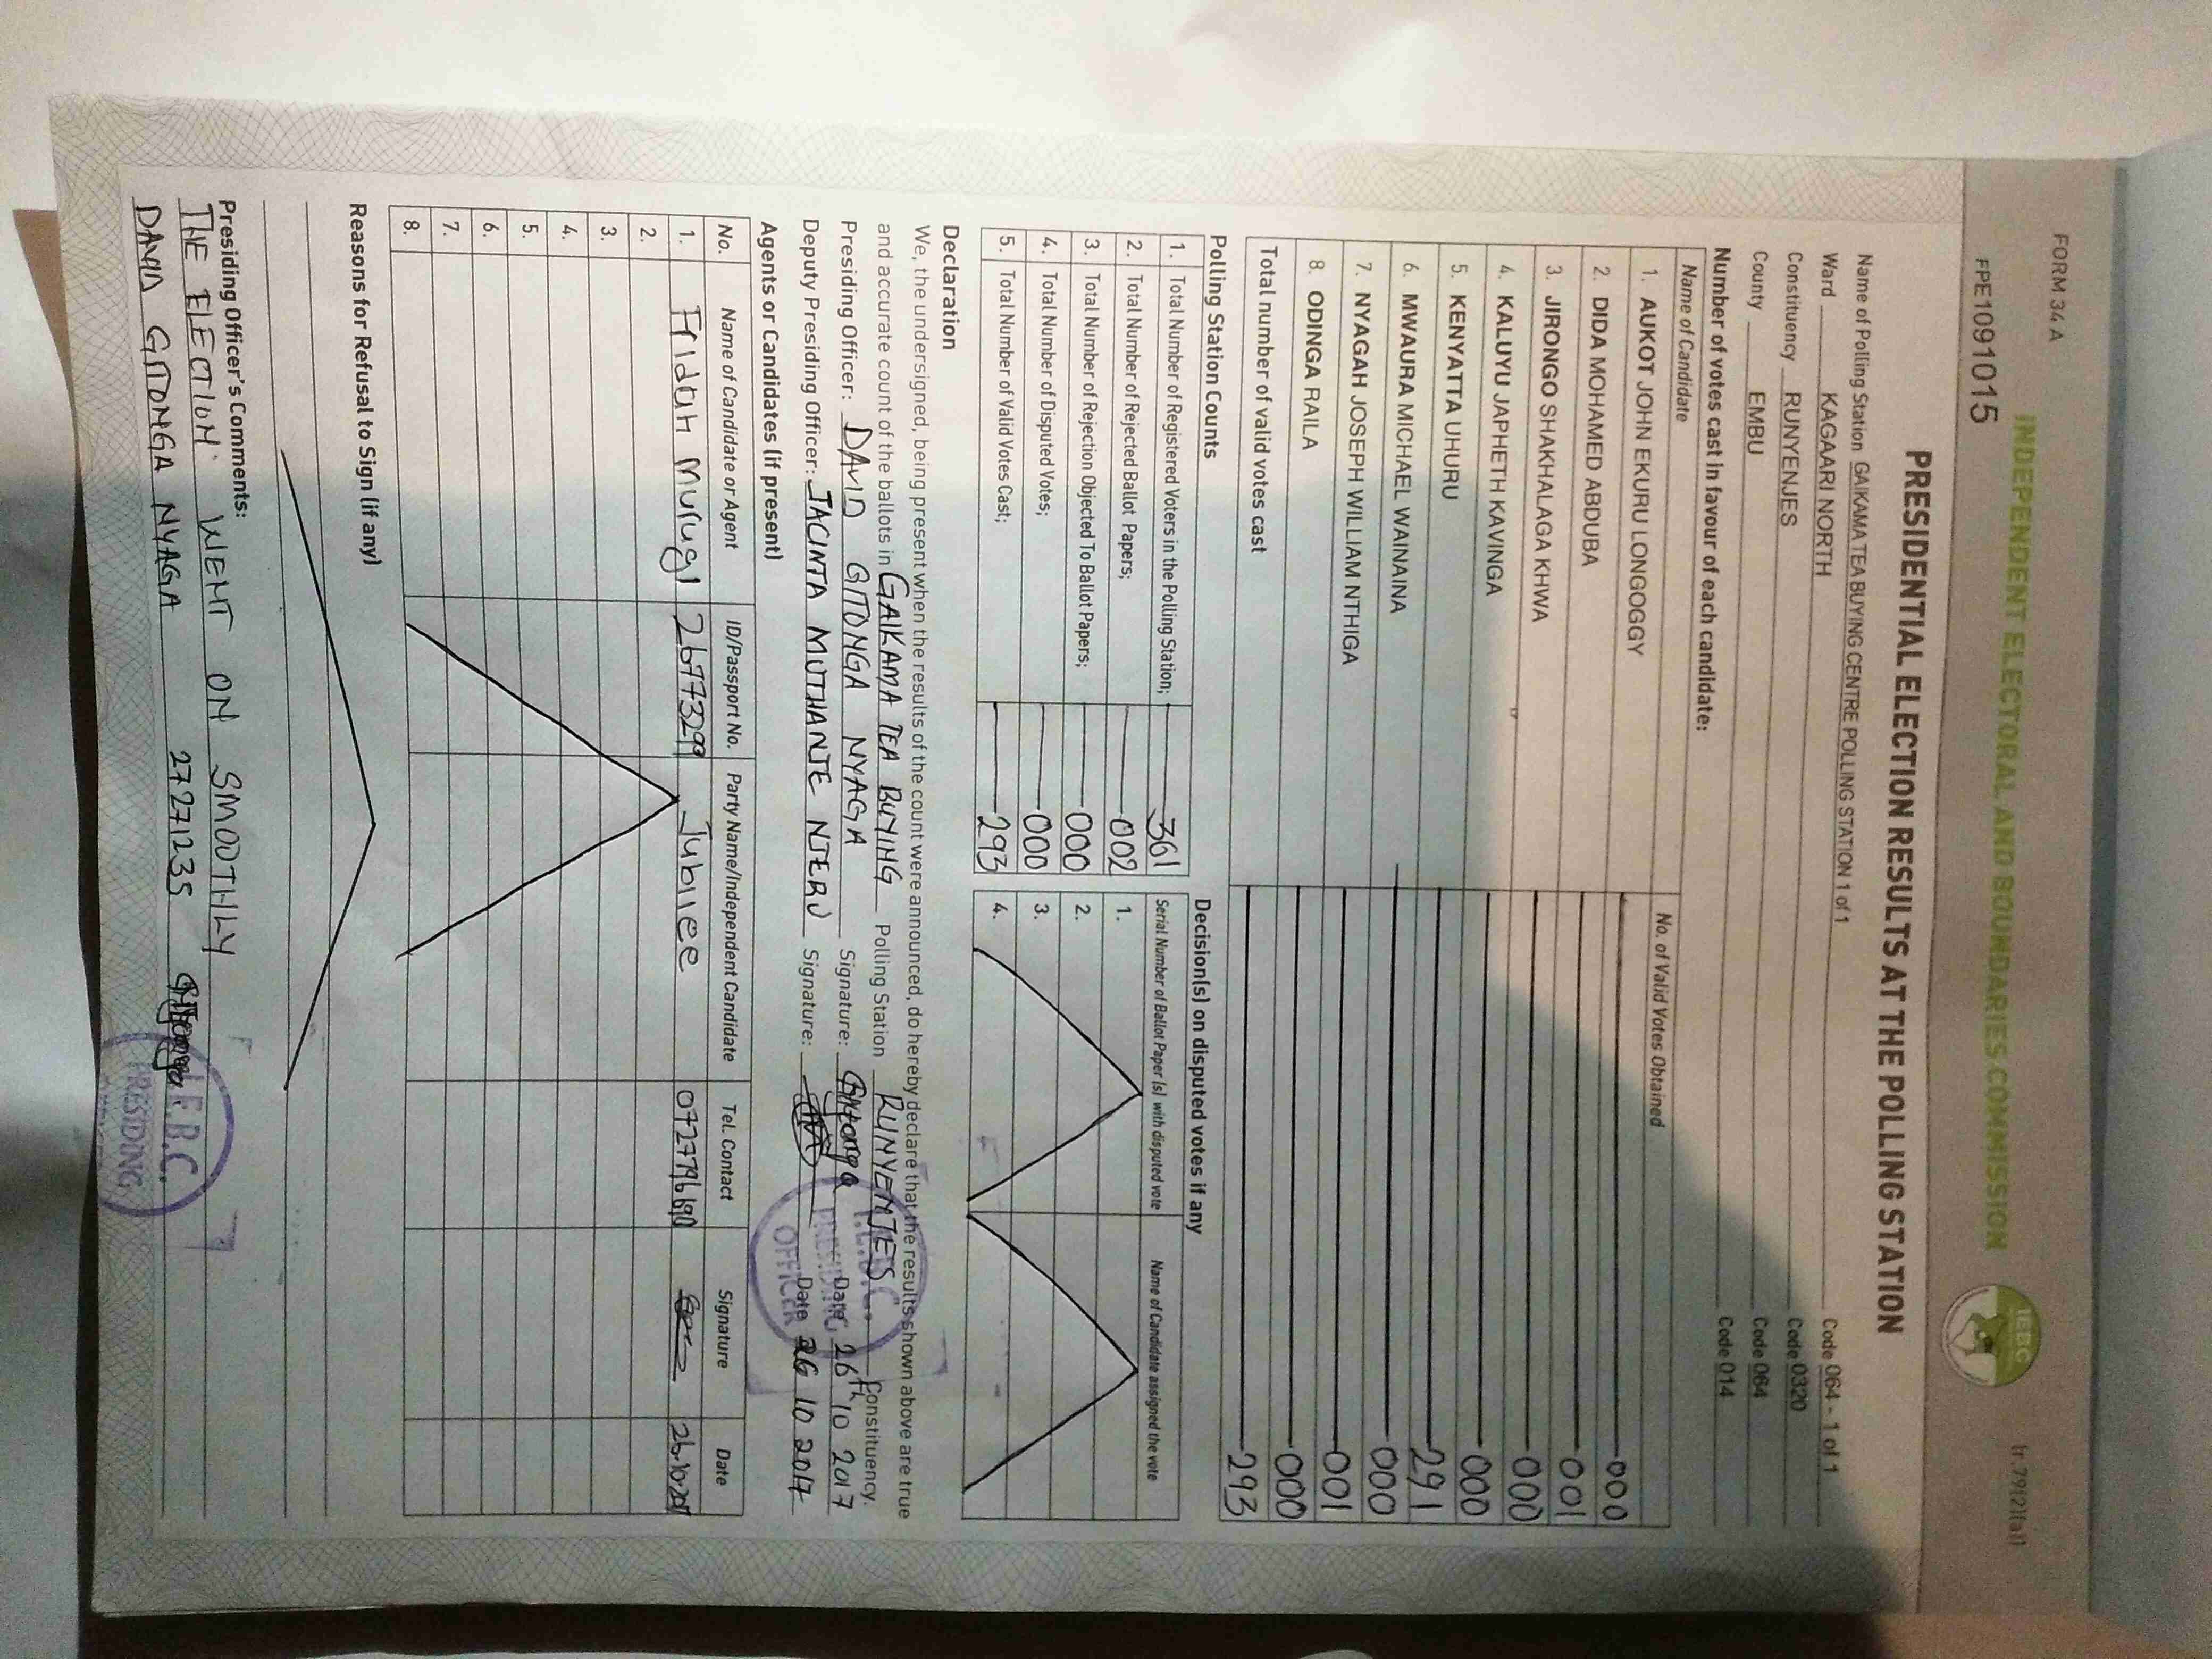 FORM 34 A
(r.79(2)(a))
INDEPENDENT ELECTORAL AND BOUNDARIES COMMISSION
IEBC
FPE1091015
PRESIDENTIAL ELECTION RESULTS AT THE POLLING STATION
Name of Polling Station GAIKAMA TEA BUYING CENTRE POLLING STATION 1 of 1 Code 064 - 1 of 1
Ward KAGAARI NORTH Code 0320
Constituency RUNYENJES Code 064
County EMBU Code 014
Number of votes cast in favour of each candidate:
Name of Candidate No. of Valid Votes Obtained
1. AUKOT JOHN EKURU LONGOGGY 000
2. DIDA MOHAMED ABDUBA 001
3. JIRONGO SHAKHALAGA KHWA 000
4. KALUYU JAPHETH KAVINGA 000
5. KENYATTA UHURU 291
6. MWAURA MICHAEL WAINAINA 000
7. NYAGAH JOSEPH WILLIAM NTHIGA 001
8. ODINGA RAILA 000
Total number of valid votes cast 293
Polling Station Counts
1. Total Number of Registered Voters in the Polling Station; 361
2. Total Number of Rejected Ballot Papers; 002
3. Total Number of Rejection Objected To Ballot Papers; 000
4. Total Number of Disputed Votes; 000
5. Total Number of Valid Votes Cast; 293
Decision(s) on disputed votes if any
Serial Number of Ballot Paper (s) with disputed vote Name of Candidate assigned the vote
1.
2.
3.
4.
Declaration
We, the undersigned, being present when the results of the count were announced, do hereby declare that the results shown above are true
and accurate count of the ballots in GAIKAMA TEA BUYING Polling Station RUNYENJES Constituency.
Presiding Officer: DAVID GITONGA NYAGA Signature: Gitonga Date 26th 10 2017
Deputy Presiding Officer: JACINTA MUTHANJE NJERU Signature: Date 26 10 2017
I.E.B.C.
PRESIDING
OFFICER
Agents or Candidates (if present)
No. Name of Candidate or Agent ID/Passport No. Party Name/Independent Candidate Tel. Contact Signature Date
1. Fridah Murugi 26773299 Jubilee 0727796690 26.10.2017
2.
3.
4.
5.
6.
7.
8.
Reasons for Refusal to Sign (if any)
Presiding Officer's Comments:
THE ELECTION WENT ON SMOOTHLY
DAVID GITONGA NYAGA 27271235 Gitonga
I.E.B.C.
PRESIDING